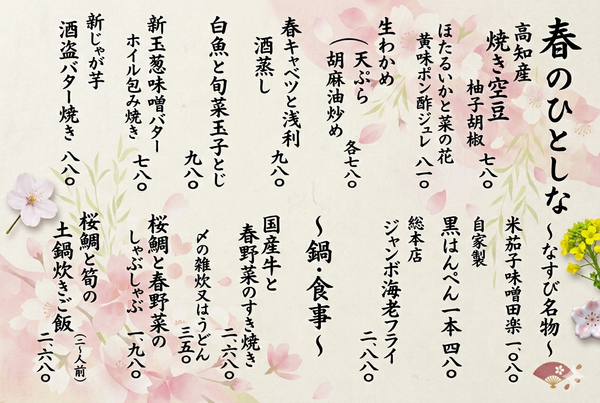 春のひとしな
高知産
焼き空豆
柚子胡椒 七八〇
ほたるいかと菜の花
黄味ポン酢ジュレ 八一〇
生わかめ
(天ぷら
胡麻油炒め
各七八〇
春キャベツと浅利
酒蒸し
九八〇
白魚と旬菜玉子とじ
九八〇
新玉葱味噌バター
ホイル包み焼き 七八〇
新じゃが芋
酒盗バター焼き 八八〇
〜なすび名物〜
米茄子味噌田楽 一、〇八〇
自家製
黒はんぺん一本 四八〇
総本店
ジャンボ海老フライ
二、八八〇
〜鍋・食事〜
国産牛と
春野菜のすき焼き
二、六八〇
〆の雑炊又はうどん
三五〇
桜鯛と春野菜の
しゃぶしゃぶ 一、九八〇
桜鯛と筍の
土鍋炊きご飯
(二〜人前)
二、六八〇